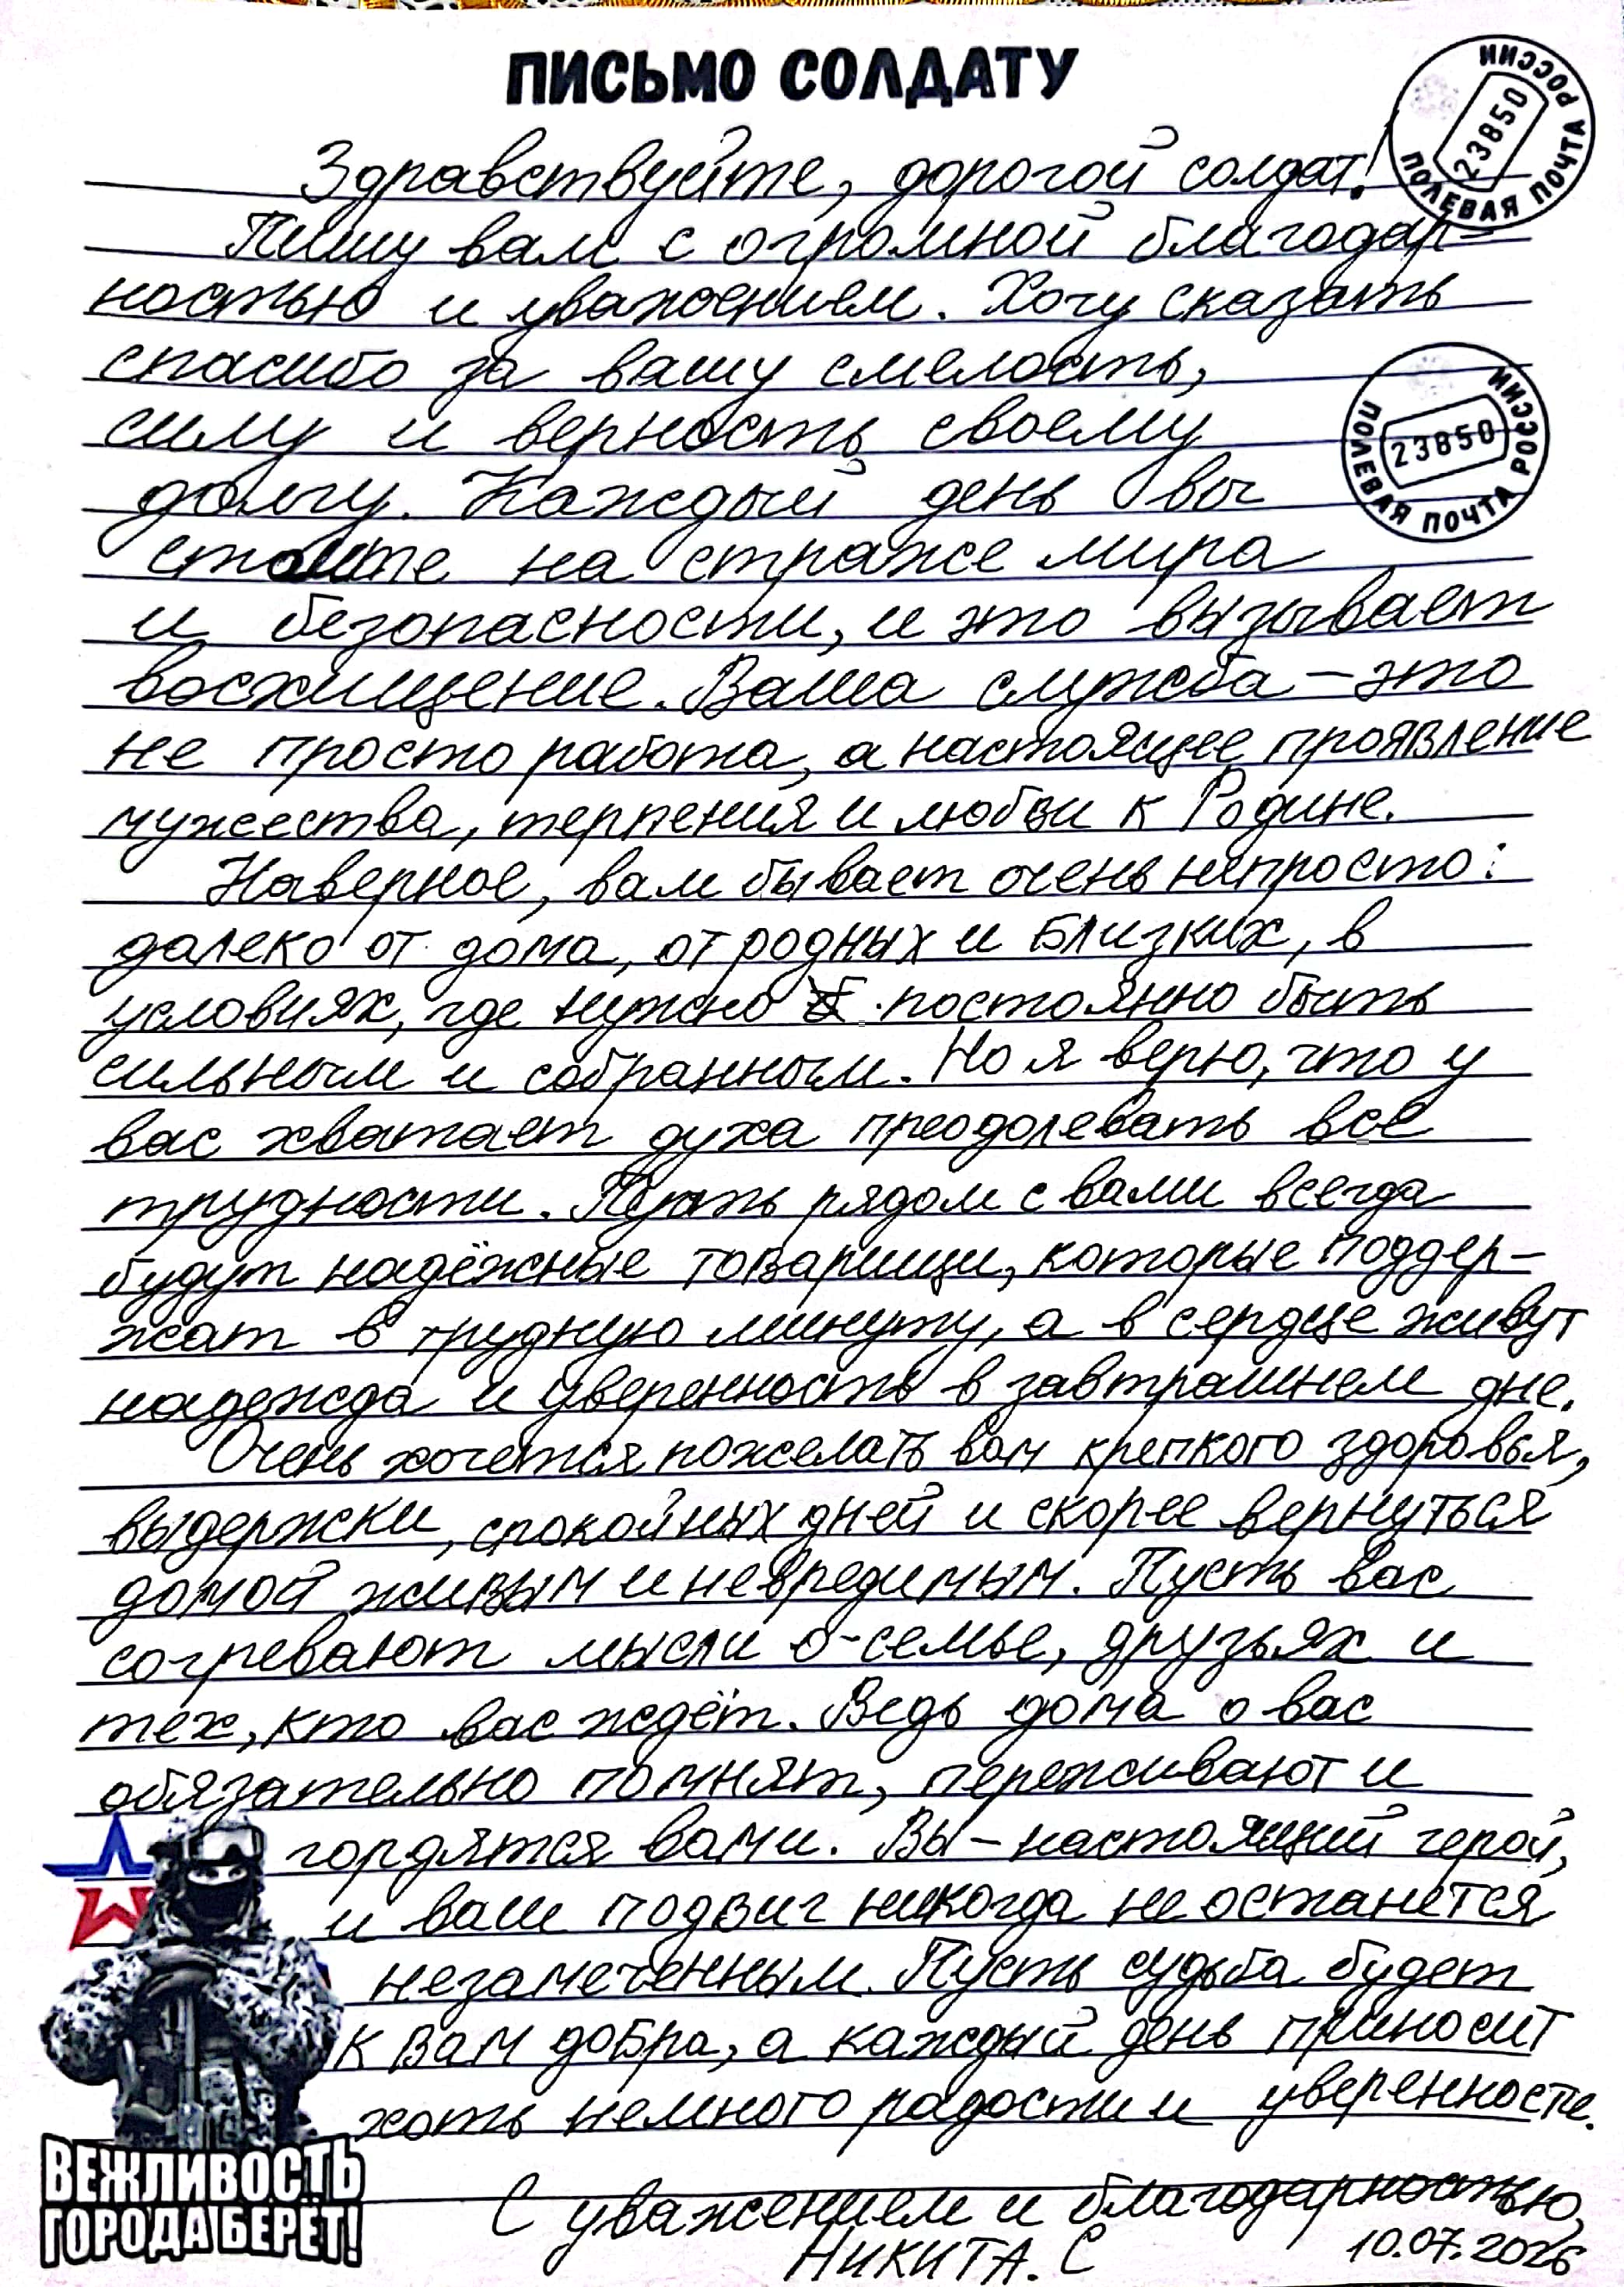 ПИСЬМО СОЛДАТУ
ПОЛЕВАЯ ПОЧТА РОССИИ
23850
Здравствуйте, дорогой солдат!
Пишу вам с огромной благодар-
ностью и уважением. Хочу сказать
спасибо за вашу смелость,
ПОЛЕВАЯ ПОЧТА РОССИИ
23850
силу и верность своему
долгу. Каждый день вы
стоите на страже мира
и безопасности, и это вызывает
восхищение. Ваша служба – это
не просто работа, а настоящее проявление
мужества, терпения и любви к Родине.
Наверное, вам бывает очень непросто:
далеко от дома, от родных и близких, в
условиях, где нужно постоянно быть
сильным и собранным. Но я верю, что у
вас хватает духа преодолевать все
трудности. Пусть рядом с вами всегда
будут надёжные товарищи, которые поддер-
жат в трудную минуту, а в сердце живут
надежда и уверенность в завтрашнем дне.
Очень хочется пожелать вам крепкого здоровья,
выдержки, спокойных дней и скорее вернуться
домой живым и невредимым. Пусть вас
согревают мысли о семье, друзьях и
тех, кто вас ждёт. Ведь дома о вас
обязательно помнят, переживают и
гордятся вами. Вы – настоящий герой,
и ваш подвиг никогда не останется
незамеченным. Пусть судьба будет
к вам добра, а каждый день приносит
хоть немного радости и уверенности.
ВЕЖЛИВОСТЬ
ГОРОДА БЕРЁТ!
С уважением и благодарностью,
НИКИТА. С
10.07.2026